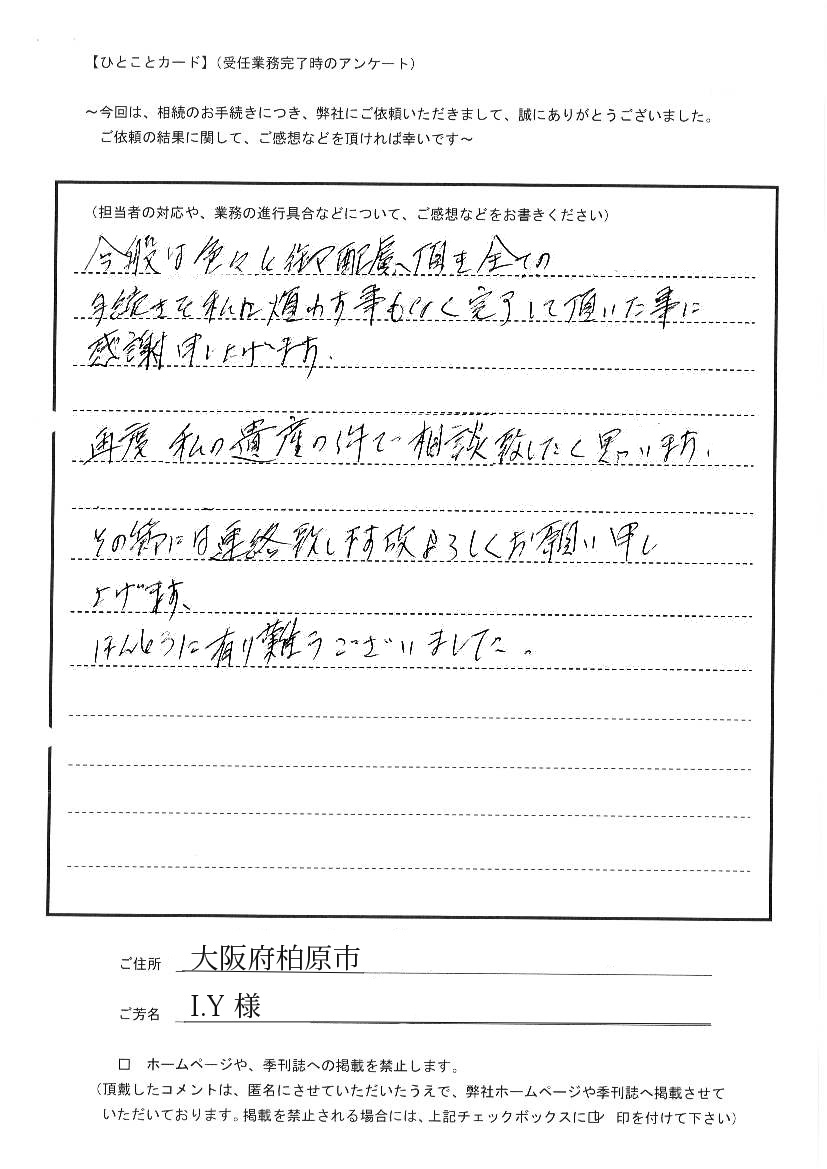 【ひとことカード】（受任業務完了時のアンケート）
～今回は、相続のお手続きにつき、弊社にご依頼いただきまして、誠にありがとうございました。
ご依頼の結果に関して、ご感想などを頂ければ幸いです～
（担当者の対応や、業務の進行具合などについて、ご感想などをお書きください）
今般は色々と御配慮頂き全ての
手続きを私に煩わす事もなく完了して頂いた事に
感謝申し上げます.
再度 私の遺産の件で相談致したく思います.
その節には連絡致します故よろしくお願い申し
上げます、
ほんとうに有り難うございました。
ご住所 大阪府柏原市
ご芳名 I.Y 様
□ ホームページや、季刊誌への掲載を禁止します。
（頂戴したコメントは、匿名にさせていただいたうえで、弊社ホームページや季刊誌へ掲載させて
いただいております。掲載を禁止される場合には、上記チェックボックスに☑ 印を付けて下さい）